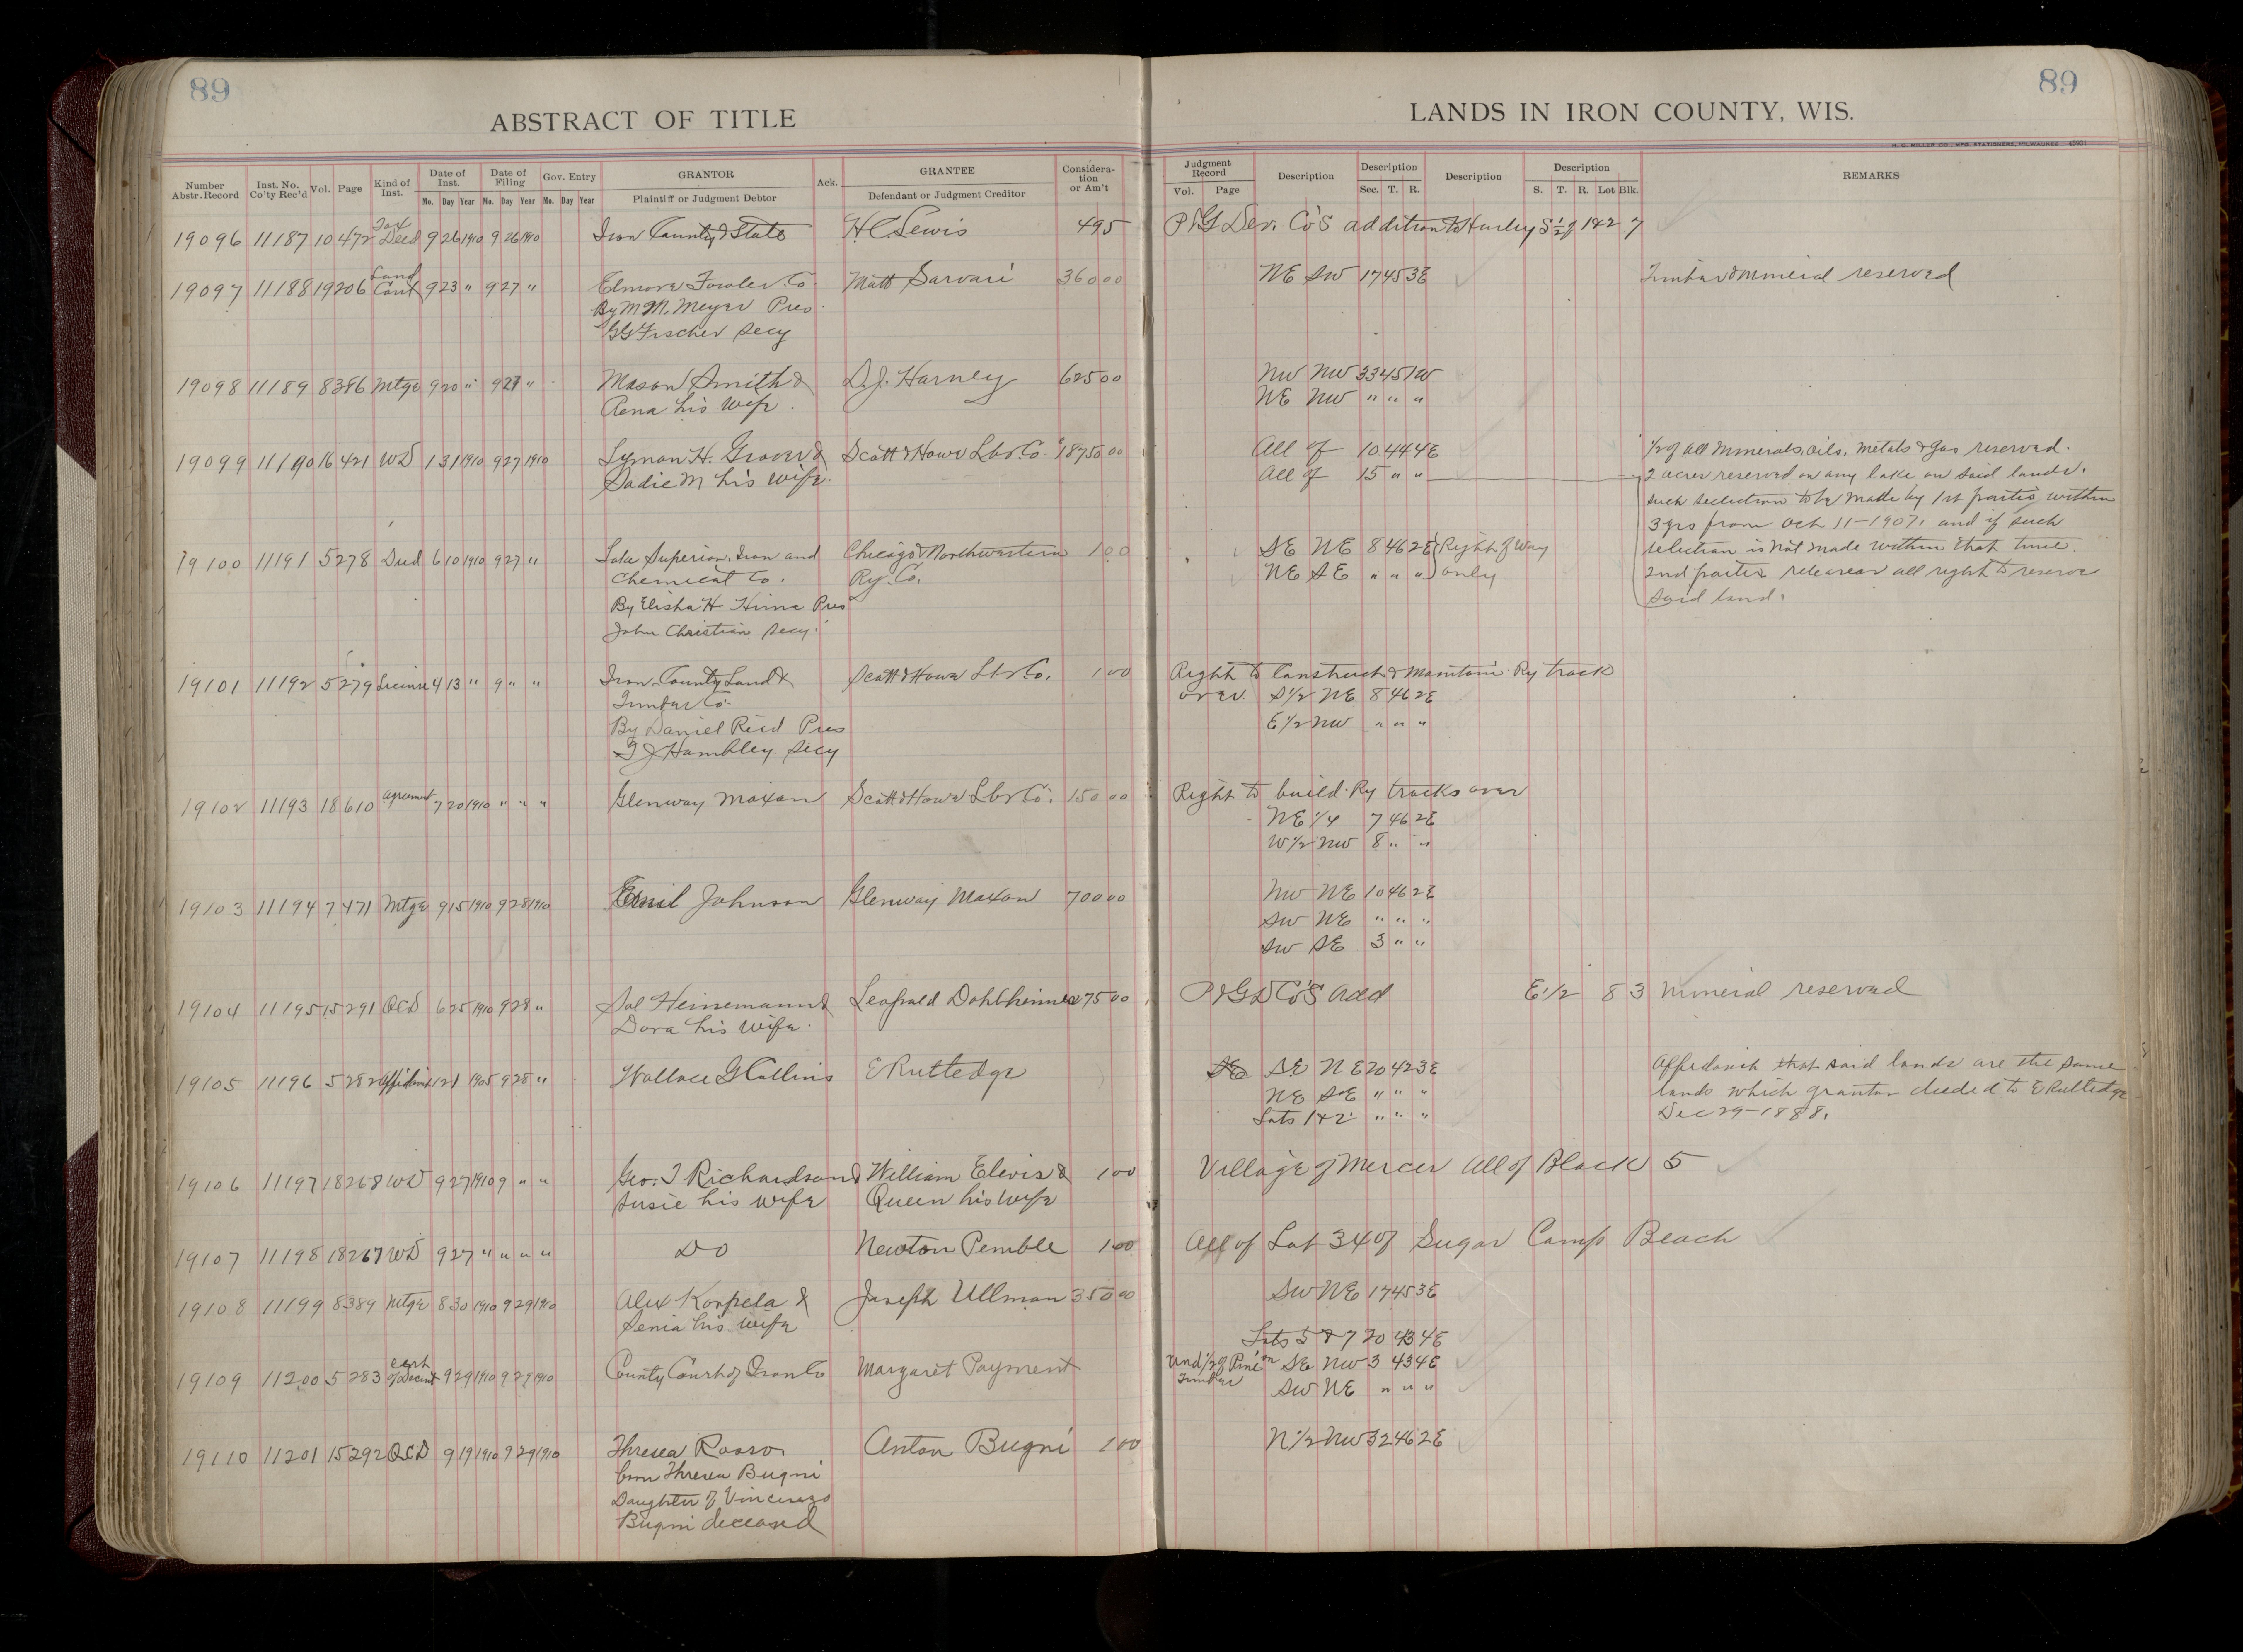 89
89
ABSTRACT OF TITLE
LANDS IN IRON COUNTY, WIS.
H. G. MILLER CO., MFG. STATIONERS, MILWAUKEE
Number Abstr. Record Inst. No. Co'ty Rec'd Vol. Page Kind of Inst. Date of Inst. Mo. Day Year Date of Filing Mo. Day Year Gov. Entry Mo. Day Year GRANTOR Plaintiff or Judgment Debtor Ack. GRANTEE Defendant or Judgment Creditor Consideration or Am't Judgment Record Vol. Page Description Description Sec. T. R. Description Description S. T. R. Lot Blk. REMARKS
19096 11187 10 472 Tax Deed 9 26 1910 9 26 1910 Iron County & State H C Lewis 4 95 P & G Dev. Co's addition to Hurley S 1/2 of 1 & 2 7
19097 11188 19 206 Land Cont 9 23 " 9 27 " Elmore Fowler Co. Matt Sarvari 360 00 NE SW 17 45 3E Timber & mineral reserved
By M M. Meyer Pres.
G G Fischer Secy
19098 11189 8 386 Mtge 9 20 " 9 27 " Mason Smith & D. J. Harney 625 00 NW NW 33 45 1W
Rena his wife. NE NW " " "
19099 11190 16 421 WD 1 31 1910 9 27 1910 Lyman H. Grover & Scott & Howe Lbr Co. 18750 00 All of 10 44 4E 1/2 of all minerals, oils, metals & gas reserved.
Sadie M his wife. All of 15 " " 2 acres reserved on any lake on said lands.
such selection to be made by 1st parties within
3 yrs from Oct 11-1907. and if such
19100 11191 5 278 Deed 6 10 1910 9 27 " Lake Superior Iron and Chicago & Northwestern 1 00 SE NE 8 46 2E Right of Way selection is not made within that time.
Chemical Co. Ry. Co. NE SE " " " only 2nd parties releases all right to reserve
By Elisha H. Pres said land.
John Christian Secy.
19101 11192 5 279 License 4 13 " 9 " " Iron County Land & Scott & Howe Lbr Co. 1 00 Right to Construct & Maintain Ry track
Timber Co. over S 1/2 NE 8 46 2E
By Daniel Reid Pres E 1/2 NW " " "
G J Hambley. Secy
19102 11193 18 610 agreement 7 20 1910 " " " Glenway Maxon Scott & Howe Lbr Co. 150 00 Right to build Ry tracks over
NE 1/4 7 46 2E
W 1/2 NW 8 " "
19103 11194 7 471 Mtge 9 15 1910 9 28 1910 Emil Johnson Glenway Maxon 700 00 NW NE 10 46 2E
SW NE " " "
SW SE 3 " "
19104 11195 15 291 QCD 6 25 1910 9 28 " Sol Heinemann & Leopold Dahlheimer 75 00 P & G D Co's Add E 1/2 8 3 Mineral reserved
Dora his wife.
19105 11196 5 282 Affidavit 12 1 1905 9 28 " Wallace G Collins E Rutledge SE SE NE 20 42 3E Affidavit that said lands are the same
NE SE " " " lands which grantor deeded to E Rutledge
Lots 1 & 2 " " " Dec 29-1888.
19106 11197 18 268 WD 9 27 1910 9 " " Geo. T Richardson & William Elevis & 1 00 Village of Mercer All of Block 5
Susie his wife Queen his wife
19107 11198 18 267 WD 9 27 " " " " DO Newton Pemble 1 00 All of Lot 34 of Sugar Camp Beach
19108 11199 8 389 Mtge 8 30 1910 9 29 1910 Alex Korpela & Joseph Ullman 350 00 SW NE 17 45 3E
Senia his wife
Lots 5 & 7 20 43 4E
19109 11200 5 283 cert of Descent 9 29 1910 9 29 1910 County Court of Iron Co Margaret Payment und 1/2 of Pine Timber on SE NW 3 43 4E
SW NE " " "
19110 11201 15 292 QCD 9 19 1910 9 29 1910 Thresea Rosso Anton Bugni 1 00 N 1/2 NW 32 46 2E
born Thresea Bugni
Daughter of Vincenzo
Bugni deceased